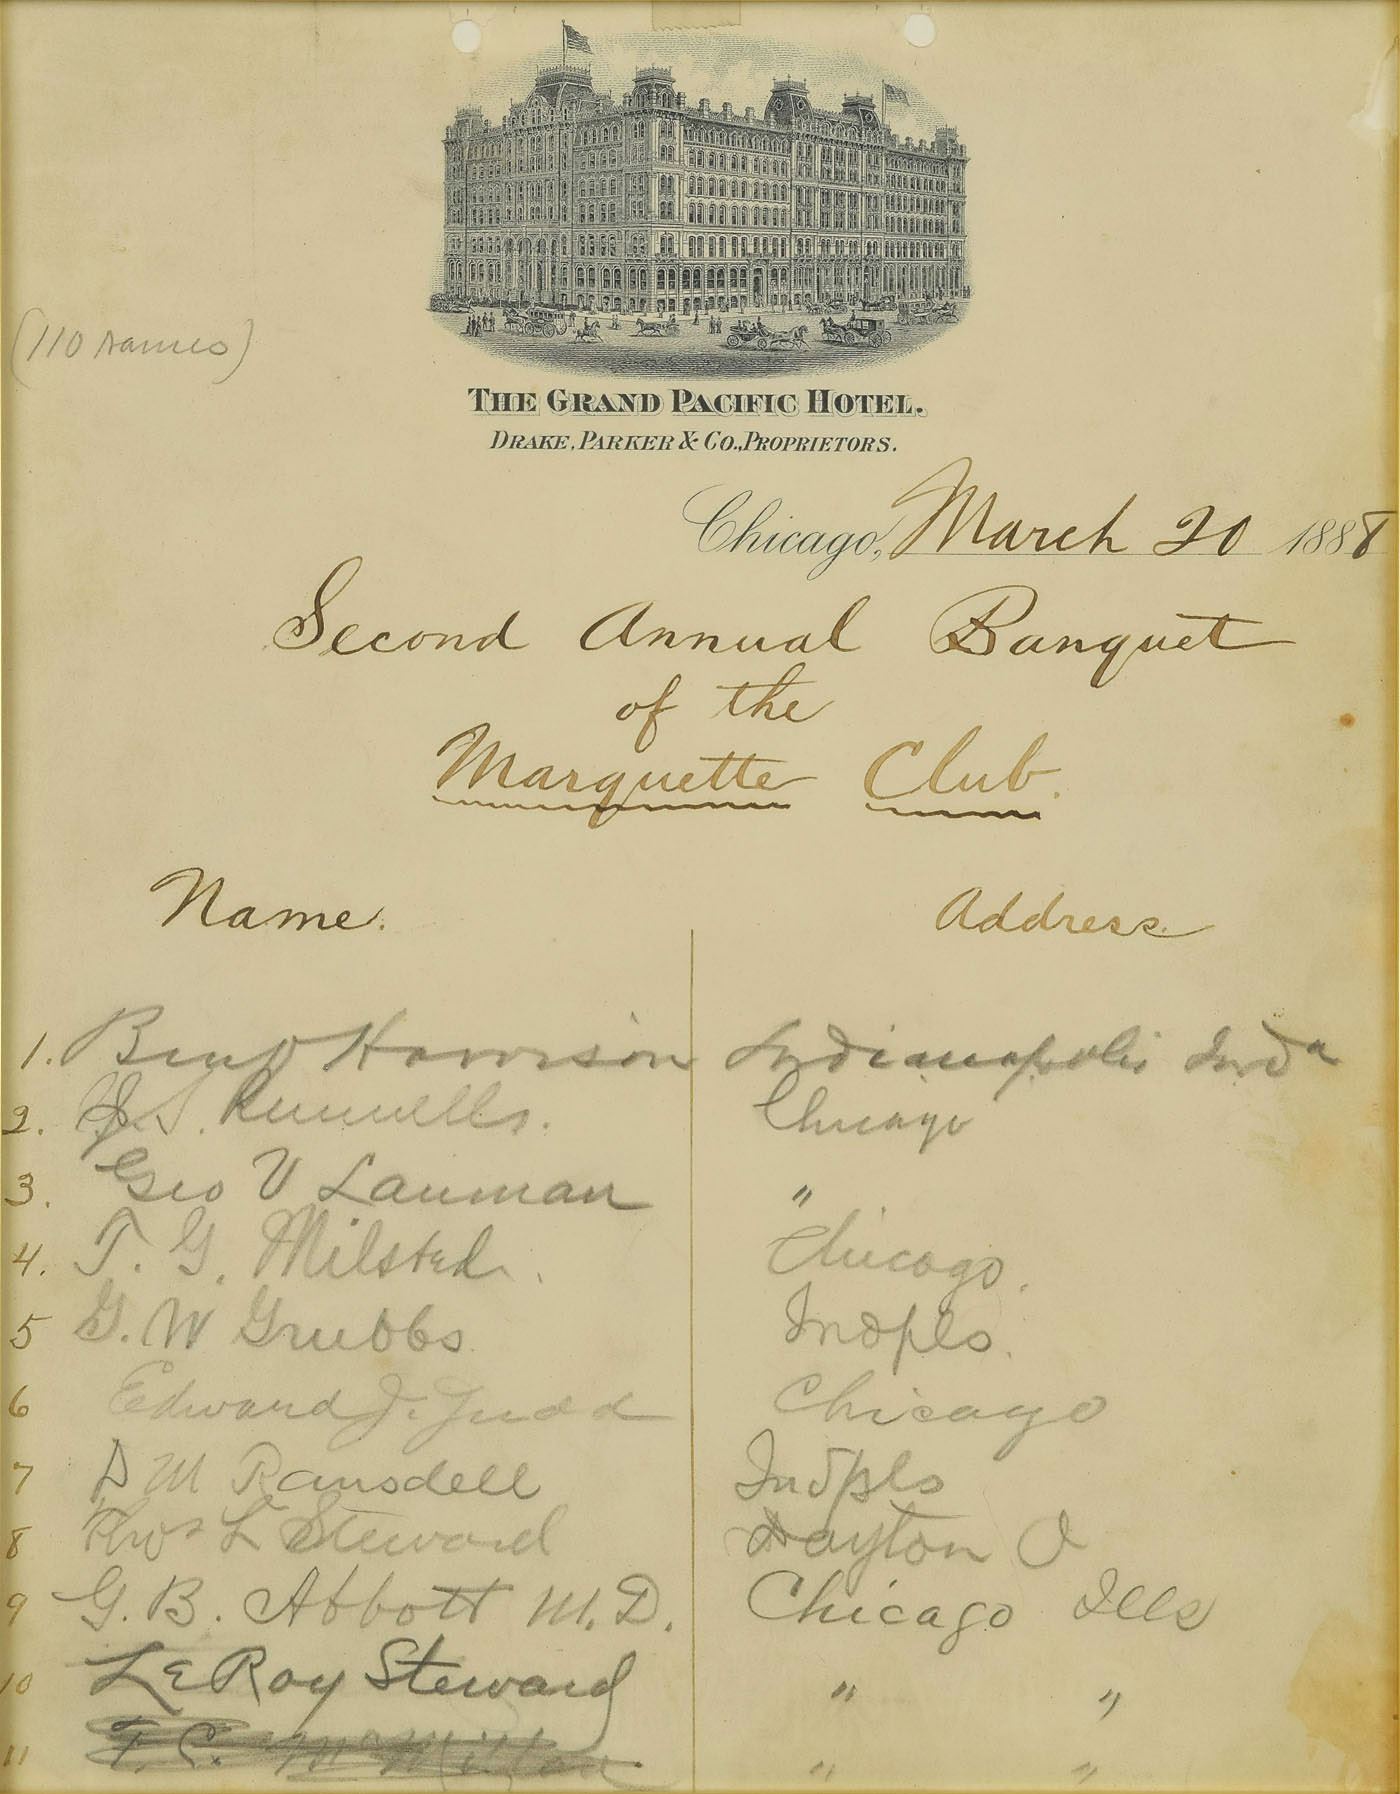 (110 names)
THE GRAND PACIFIC HOTEL.
DRAKE, PARKER & CO., PROPRIETORS.
Chicago, March 20 1888
Second Annual Banquet
of the
Marquette Club.
Name. Address
1. Benj Harrison Indianapolis Inda
2. J. S. Runnells. Chicago
3. Geo V Lauman "
4. T. G. Milsted. Chicago.
5 G. W Grubbs Indpls.
6 Edward J. Judd Chicago
7 D M Ransdell Indpls
8 Thos L Steward Dayton O
9 G. B. Abbott M.D. Chicago Ills
10 LeRoy Steward " "
11 T. C. McMillan " "